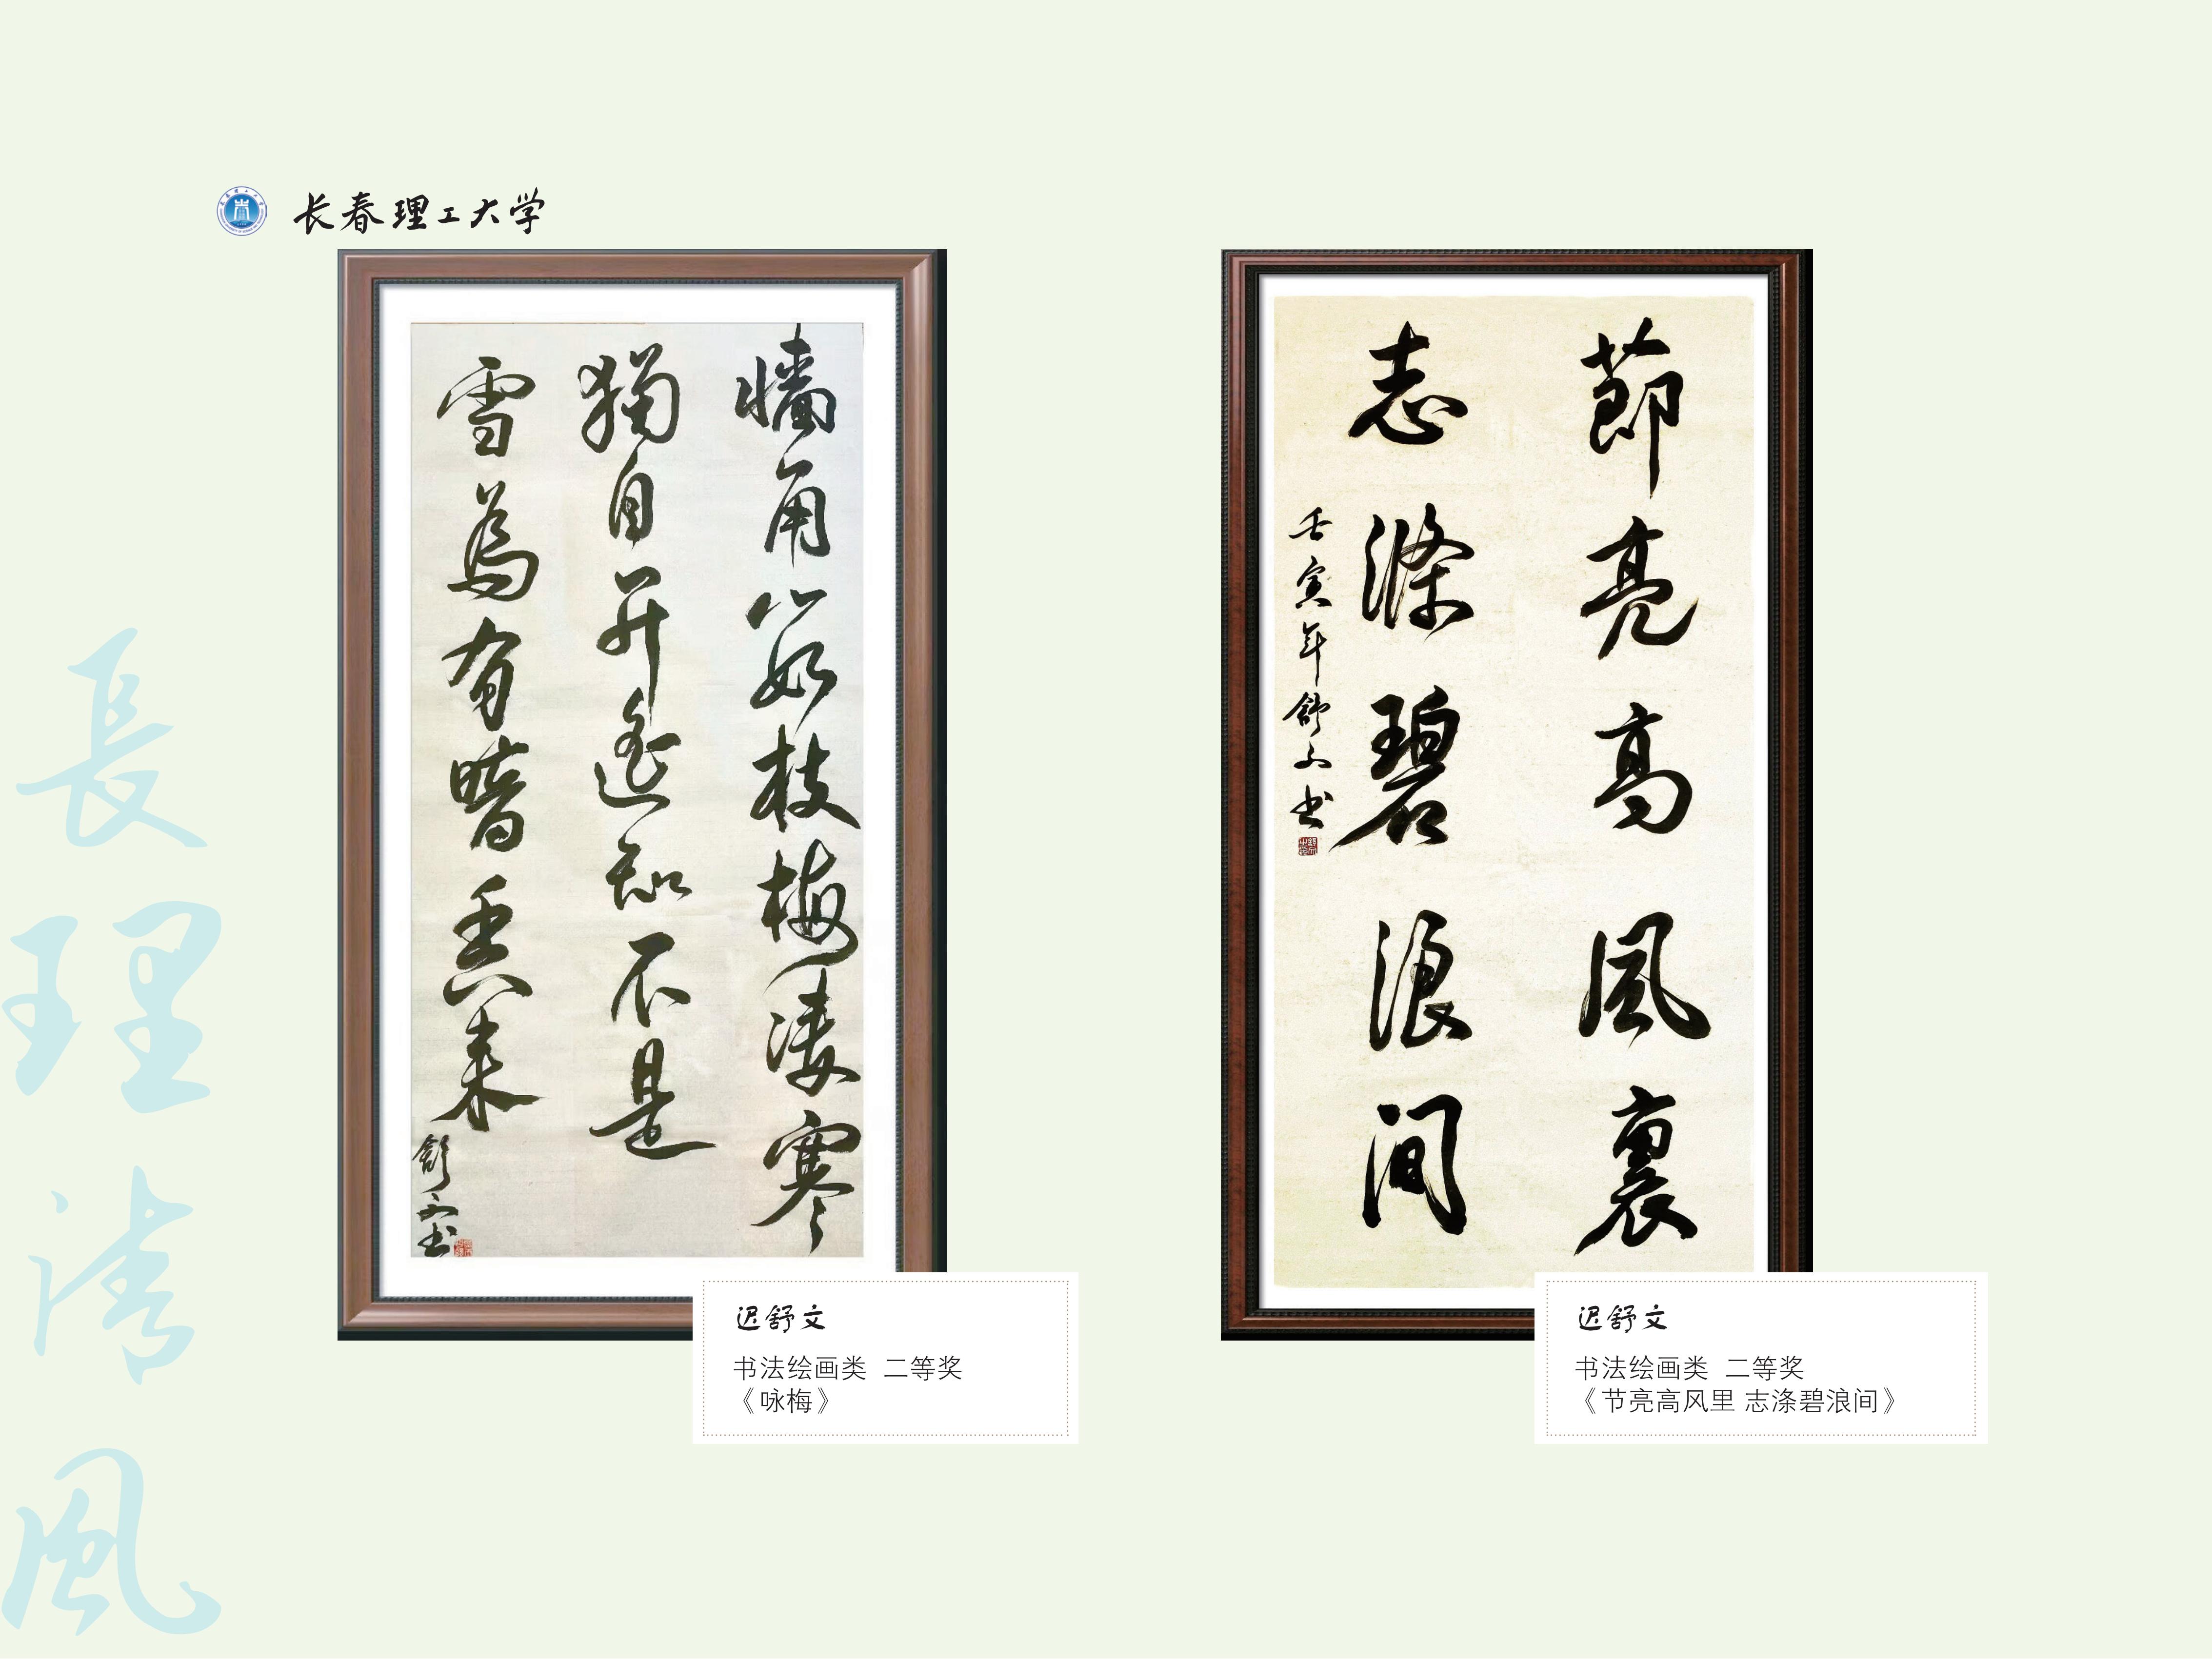 长春理工大学
長理清風
墻角數枝梅凌寒
獨自開遙知不是
雪為有暗香來
舒文書
節亮高風裏
志滌碧浪间
壬寅年舒文书
迟舒文
书法绘画类 二等奖
《咏梅》
迟舒文
书法绘画类 二等奖
《节亮高风里 志涤碧浪间》